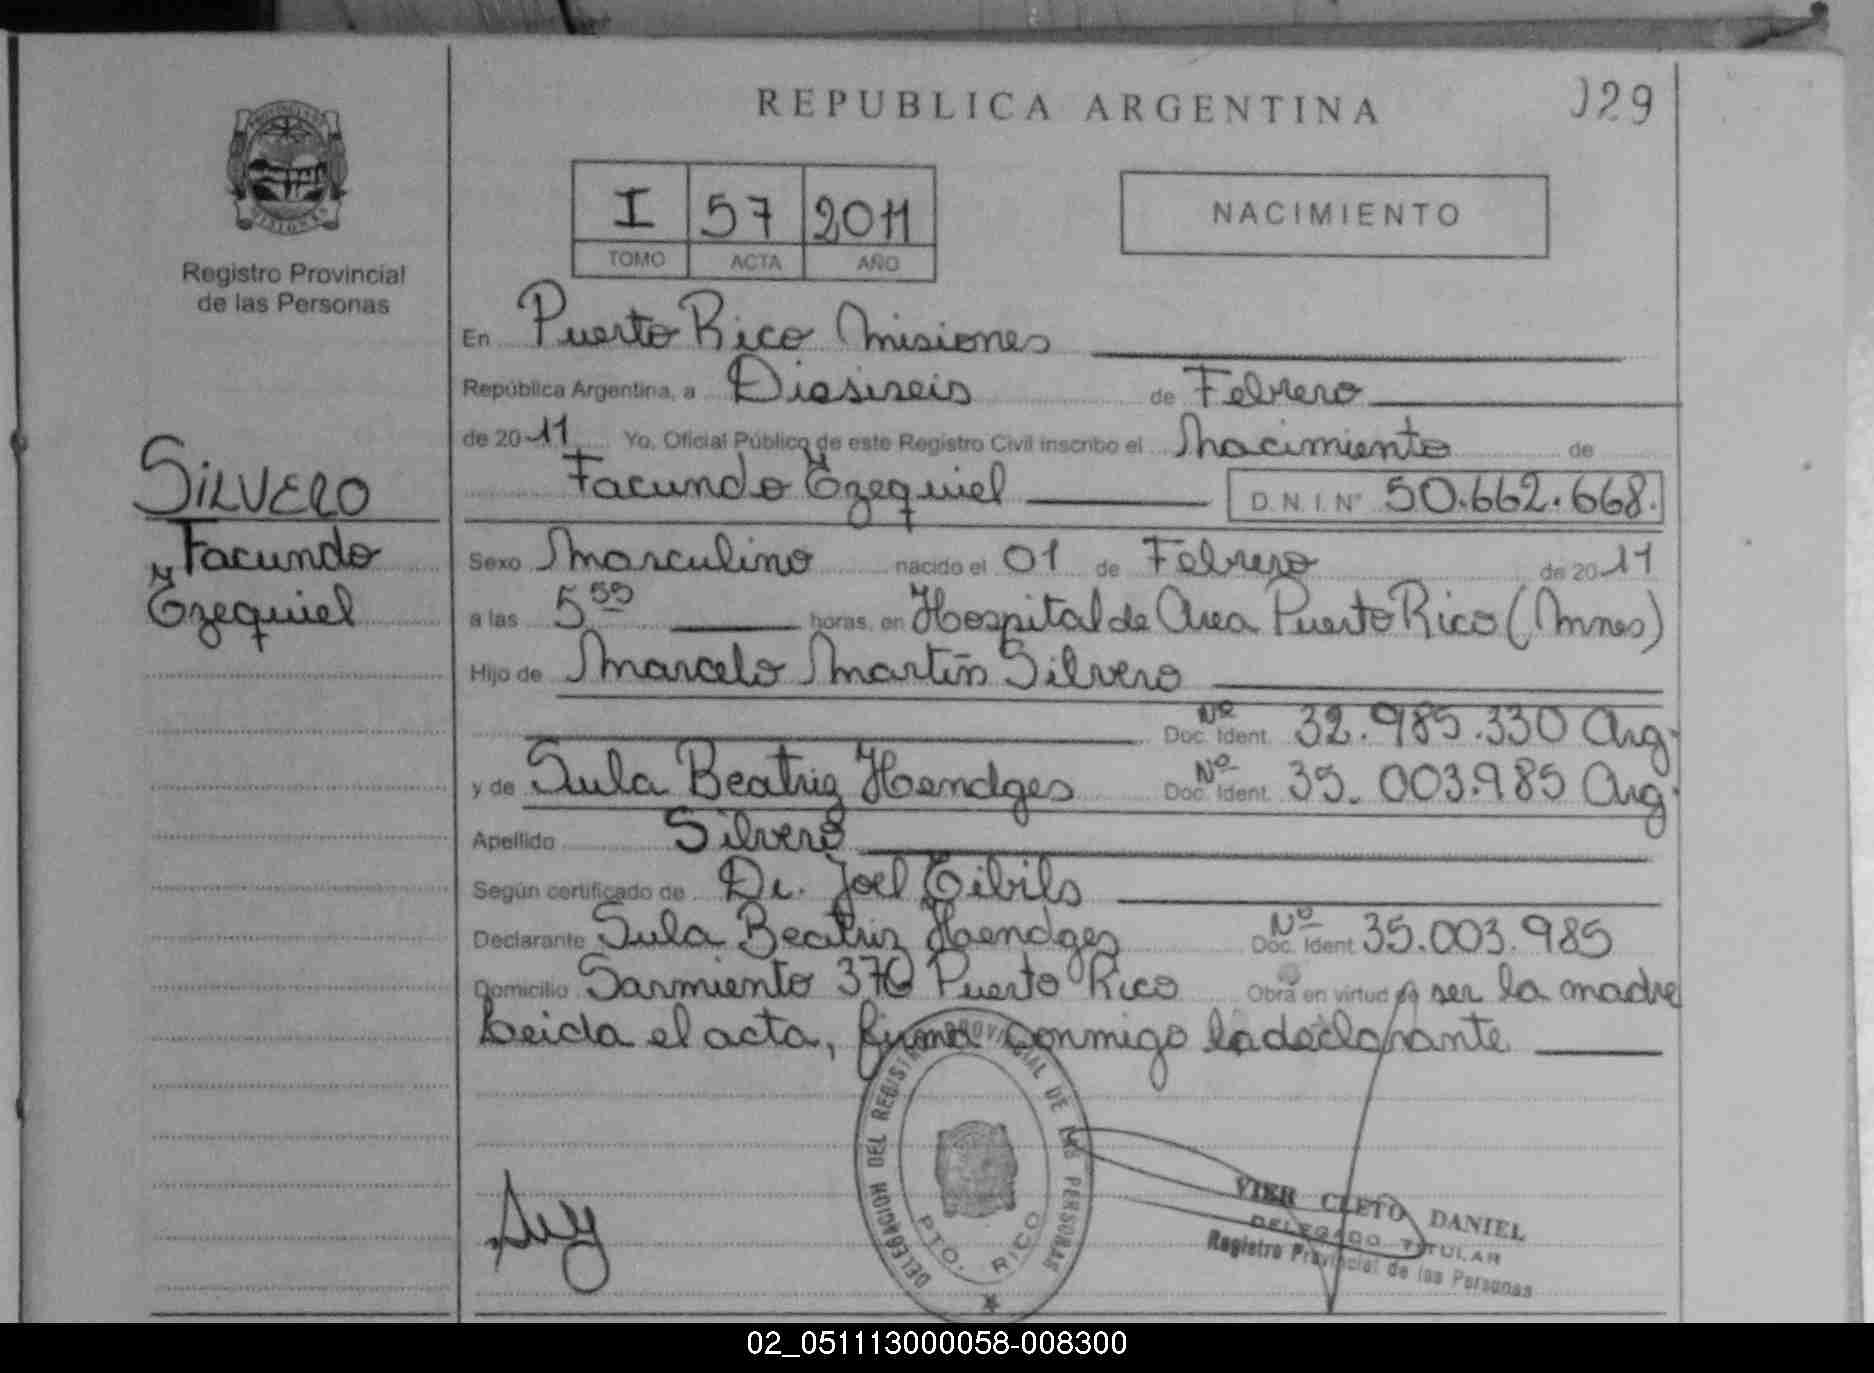 REPUBLICA ARGENTINA
129
I 57 2011
TOMO ACTA AÑO
NACIMIENTO
Registro Provincial
de las Personas
SILVERO
Facundo
Ezequiel
En Puerto Rico Misiones
República Argentina, a Diesiseis de Febrero
de 2011 Yo, Oficial Público de este Registro Civil inscribo el Nacimiento de
Facundo Ezequiel D.N.I. Nº 50.662.668.
Sexo Masculino nacido el 01 de Febrero de 2011
a las 5 horas, en Hospital de Area Puerto Rico (Mnes)
Hijo de Marcelo Martín Silvero
Nº
Doc. Ident. 32.985.330 Arg.
y de Sula Beatriz Hendges Nº Doc. Ident. 35.003.985 Arg.
Apellido Silvero
Según certificado de Dr. Joel Tibils
Declarante Sula Beatriz Hendges Nº Doc. Ident 35.003.985
Domicilio Sarmiento 376 Puerto Rico Obra en virtud de ser la madre
Leida el acta, firma conmigo la declarante
DELEGACION DEL REGISTRO PROVINCIAL DE LAS PERSONAS
PTO. RICO
VIER CLETO DANIEL
DELEGADO TITULAR
Registro Provincial de las Personas
02_051113000058-008300